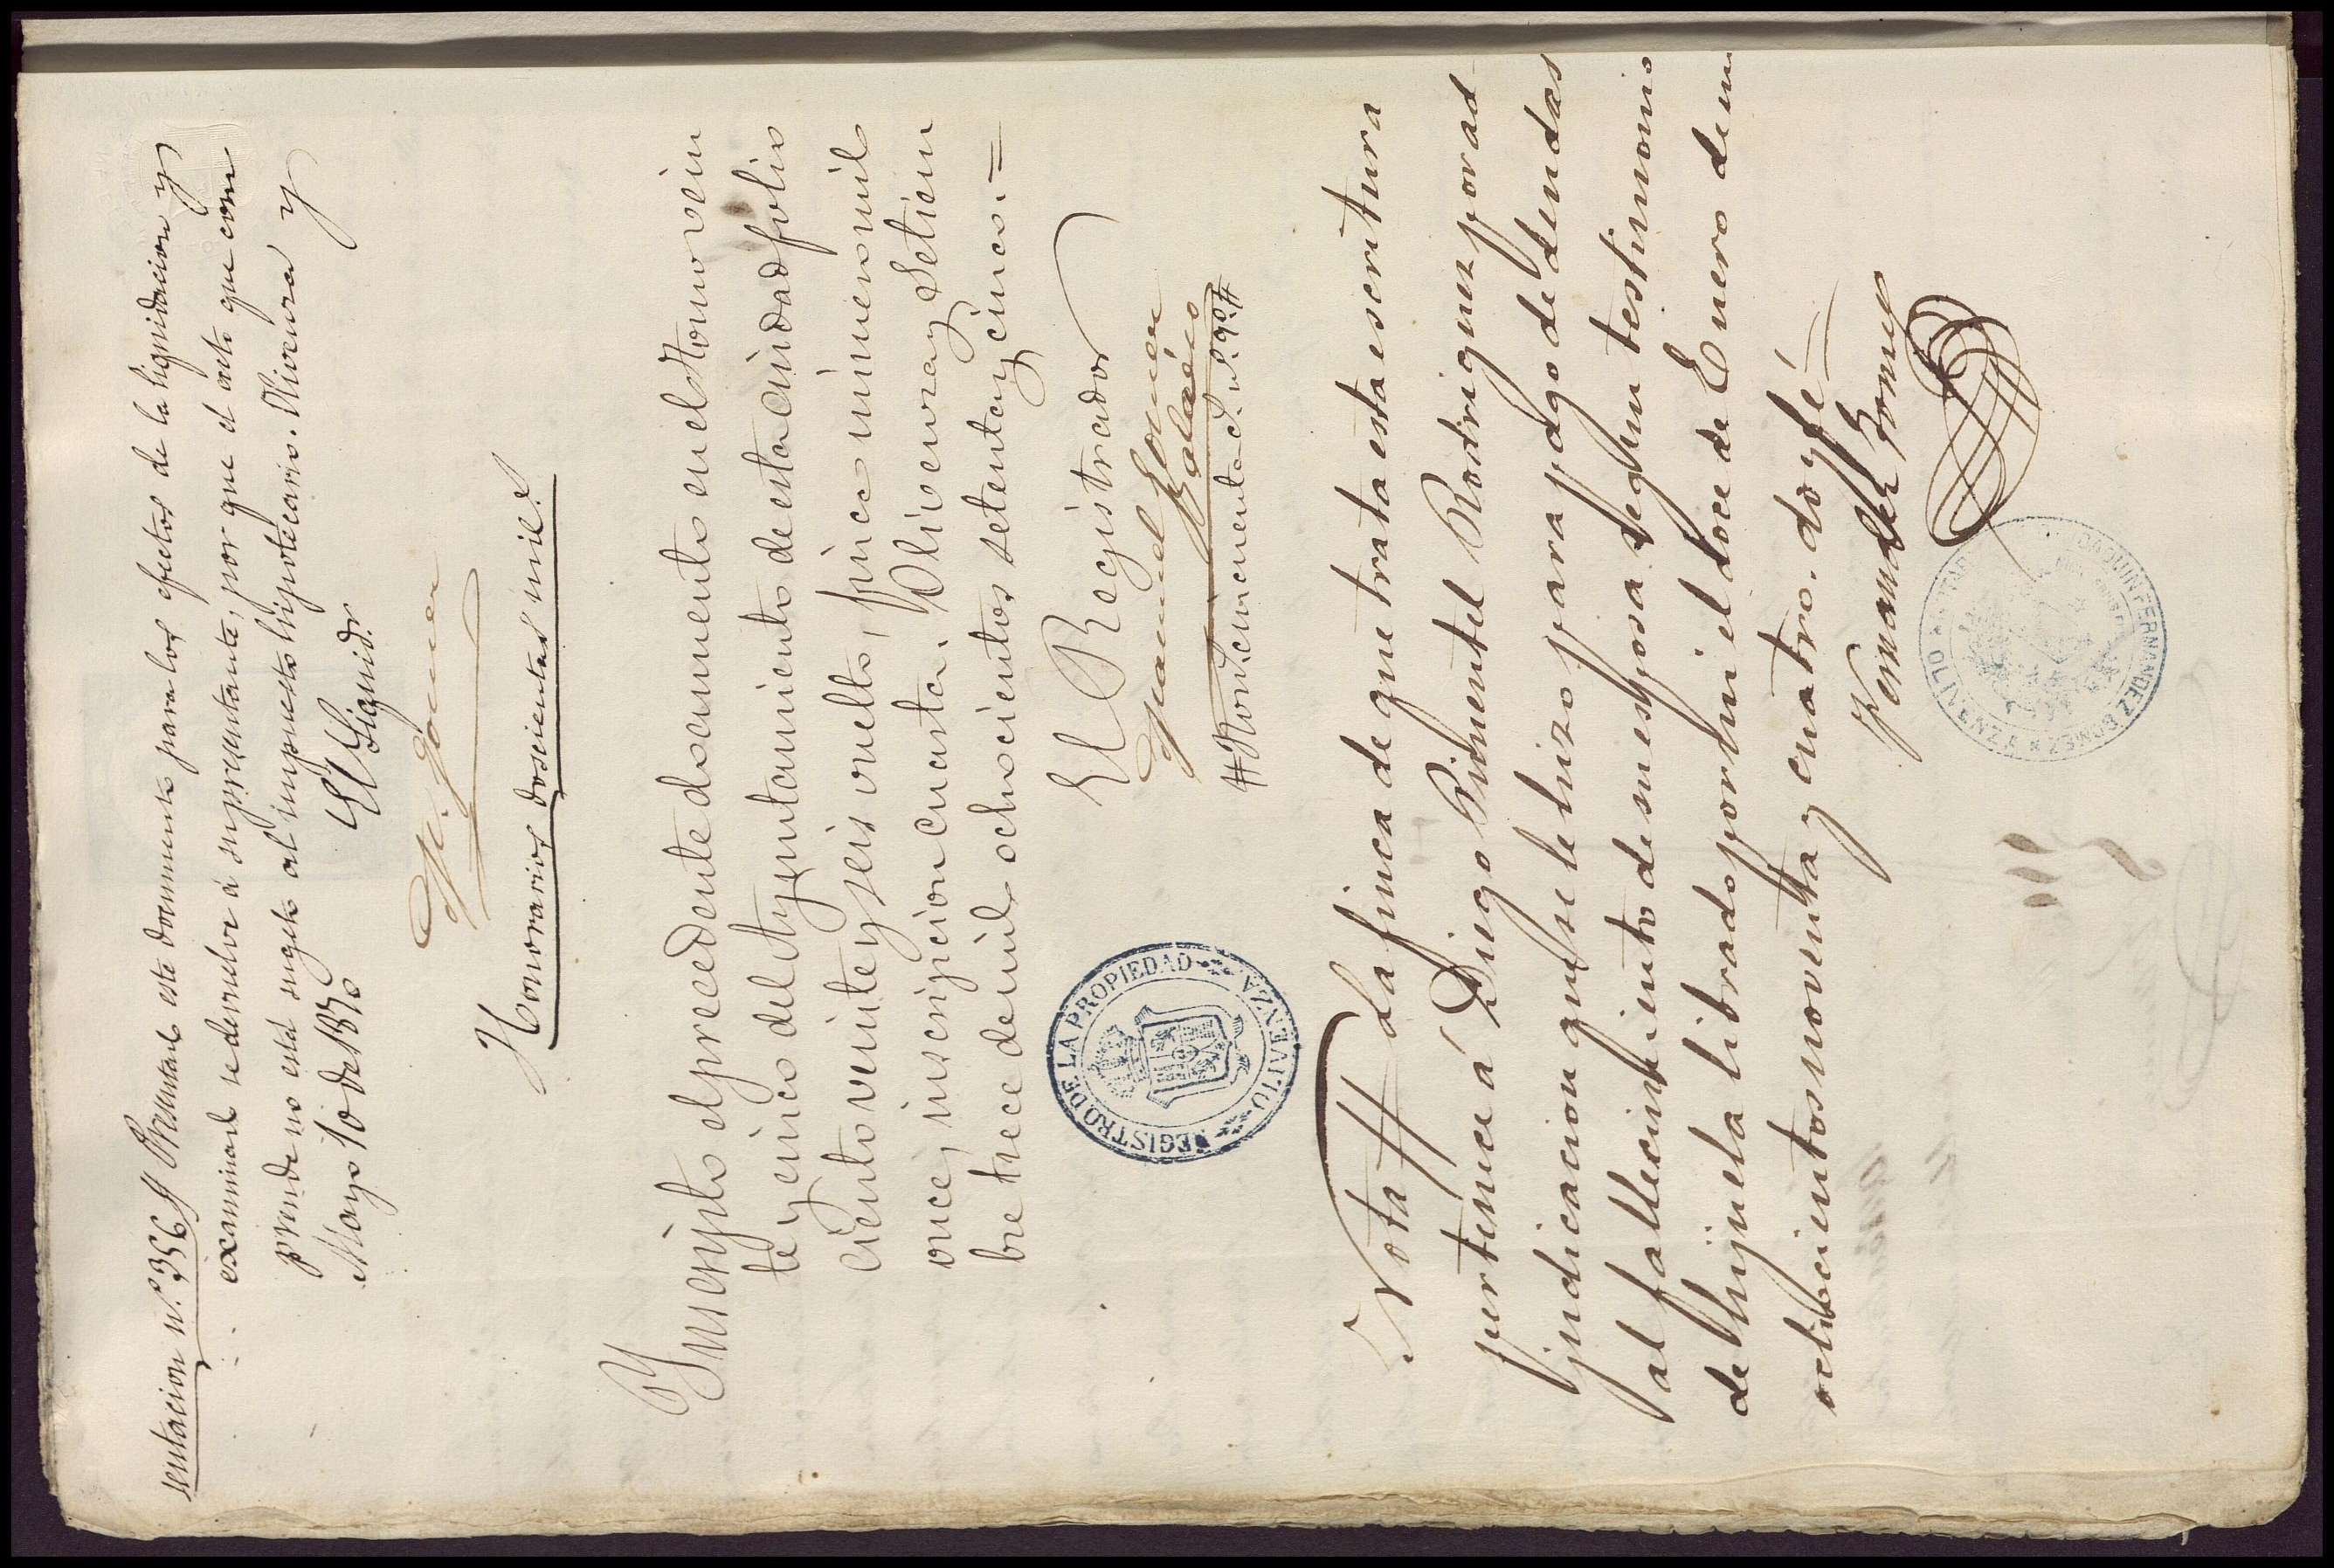 sentacion n.º 356 // Presentado este documento para los efectos de la liquidacion y
examinado se devuelve á su presentante, por que el acto que com
prende no está sugeto al impuesto hipotecario. Olivenza y
Mayo 10 de 1870
El Liquid.r
M. Gomez
Honorarios doscientas mile.s
Ynscripto el precedente documento en el tomo vein
te y cinco del Ayuntamiento de esta ciudad folio
ciento veinte y seis vuelto, finca número mil
once, inscripcion cuarta. Olivenza y Setiem
bre trece de mil ochocientos setenta y cinco.=
El Registrador
Manuel Gomez
REGISTRO DE LA PROPIEDAD
OLIVENZA
Nota // La finca de que trata esta escritura
pertenece á Diego Pimentel Rodriguez por ad-
judicacion que se le hizo para pago de deudas
al fallecimiento de su esposa segun testimonio
de hijuela librado por mi el doce de Enero de m
ochocientos noventa y cuatro. doy fé—
Fernandez Gomez
JOAQUIN FERNANDEZ GOMEZ
OLIVENZA